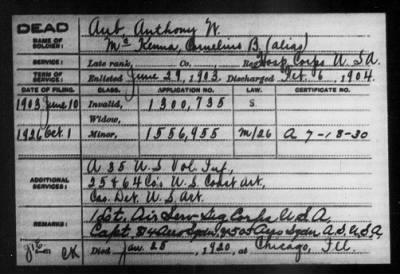 DEAD
NAME OF SOLDIER:
Aub, Anthony W.
Mc Kenna, Cornelius B. (alias)
SERVICE: Late rank, Co., Reg Hosp. Corps U.S.A.
TERM OF SERVICE: Enlisted June 29, 1903. Discharged Feb. 6, 1904.
DATE OF FILING. CLASS. APPLICATION NO. LAW. CERTIFICATE NO.
1903 June 10 Invalid, 1300,735 S
Widow,
1926 Oct. 1 Minor, 1556,955 M/26 A 7-18-30
ADDITIONAL SERVICES:
A 35 U.S. Vol. Inf.,
25 & 64 Co's U.S. Coast Art.,
Cas. Det. U.S. Art.
REMARKS:
1 Lt., Air Serv Sig Corps U.S.A.
Capt. 814 Aero Sqdn, 505 Aero Sqdn A.S. U.S.A.
CK Died Jan. 25, 1920, at Chicago, Ill.